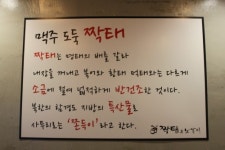 맥주 도둑 짝태
짝태는 명태의 배를 갈라
내장을 꺼내고 북어와 황태 먹태와는 다르게
소금에 절여 넓적하게 반건조한 것이다.
북한의 함경도 지방의 특산물로
사투리로는 '쫀득이'라고 한다.